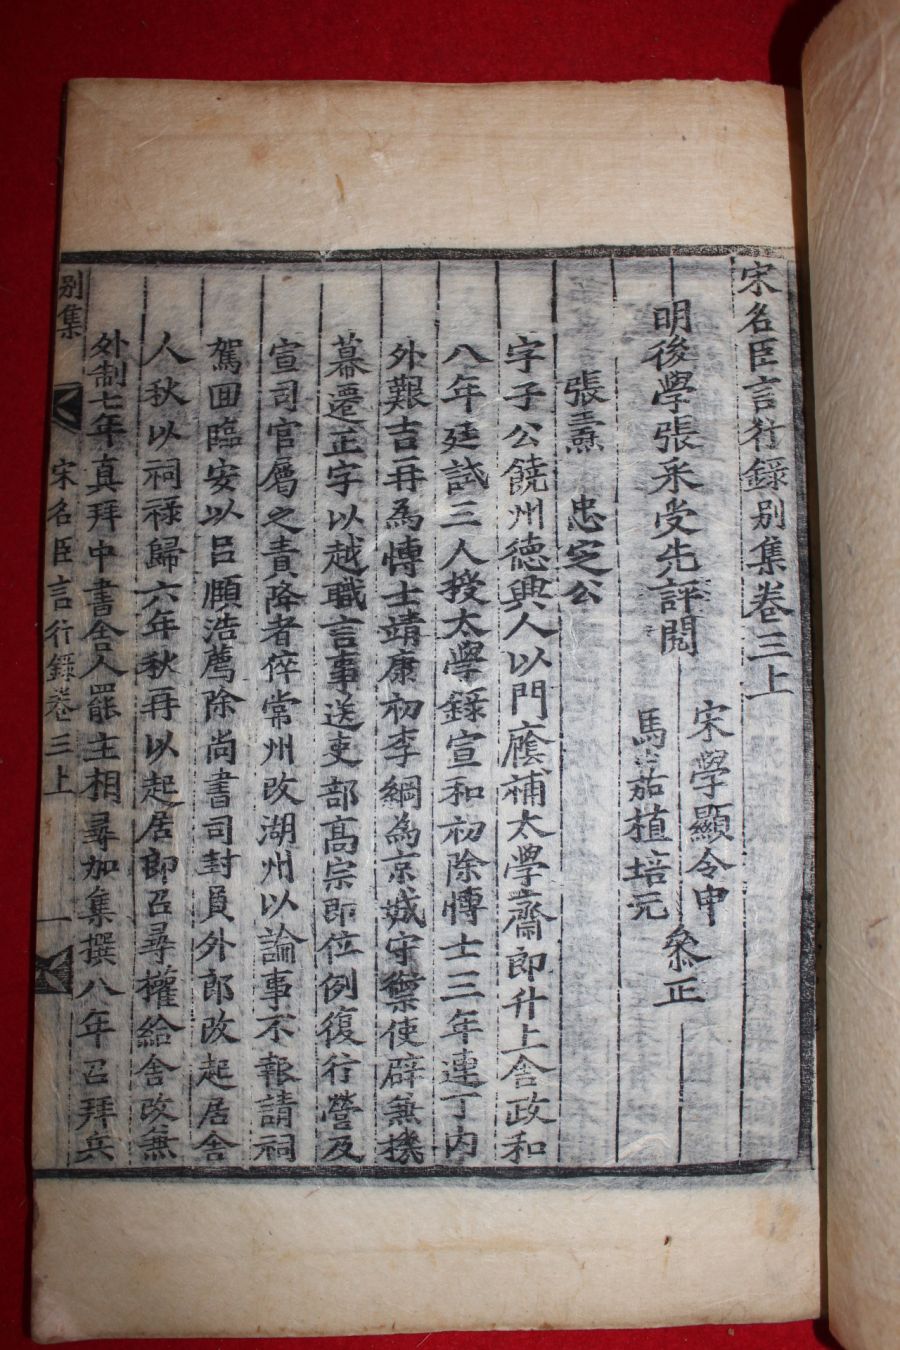 宋名臣言行錄别集卷三上
宋學顯令申
明後學張采受先評閱
叅正
馬嘉植培元
張燾 忠定公
字子公饒州德興人以門廕補太學齋郎升上舍政和
八年廷試三人授太學錄宣和初除博士三年連丁内
外艱吉再為博士靖康初李綱為京城守禦使辟兼機
幕遷正字以越職言事送吏部高宗即位例復行營及
宣司官屬之責降者倅常州改湖州以論事不報請祠
駕囬臨安以吕頤浩薦除尚書司封員外郎改起居舍
人秋以祠祿歸六年秋再以起居郎召尋權給舍改兼
外制七年真拜中書舍人罷主相尋加集撰八年召拜兵
别集 宋名臣言行錄卷三上 一